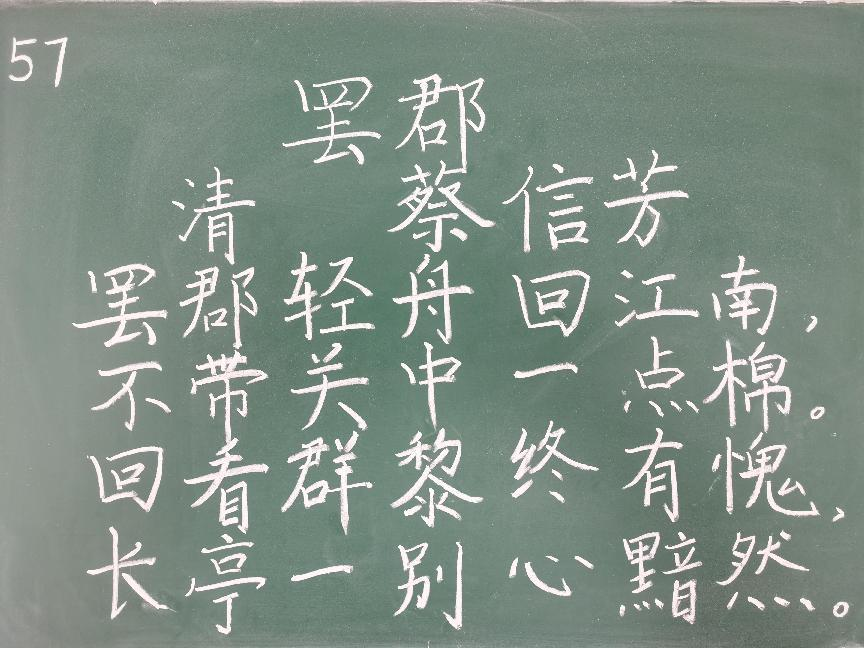 57
罢郡
清 蔡信芳
罢郡轻舟回江南,
不带关中一点棉。
回看群黎终有愧,
长亭一别心黯然。